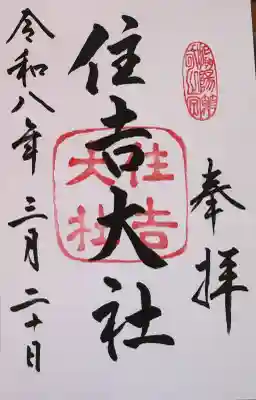 奉拝
住吉大社
住吉大社
令和八年三月二十日